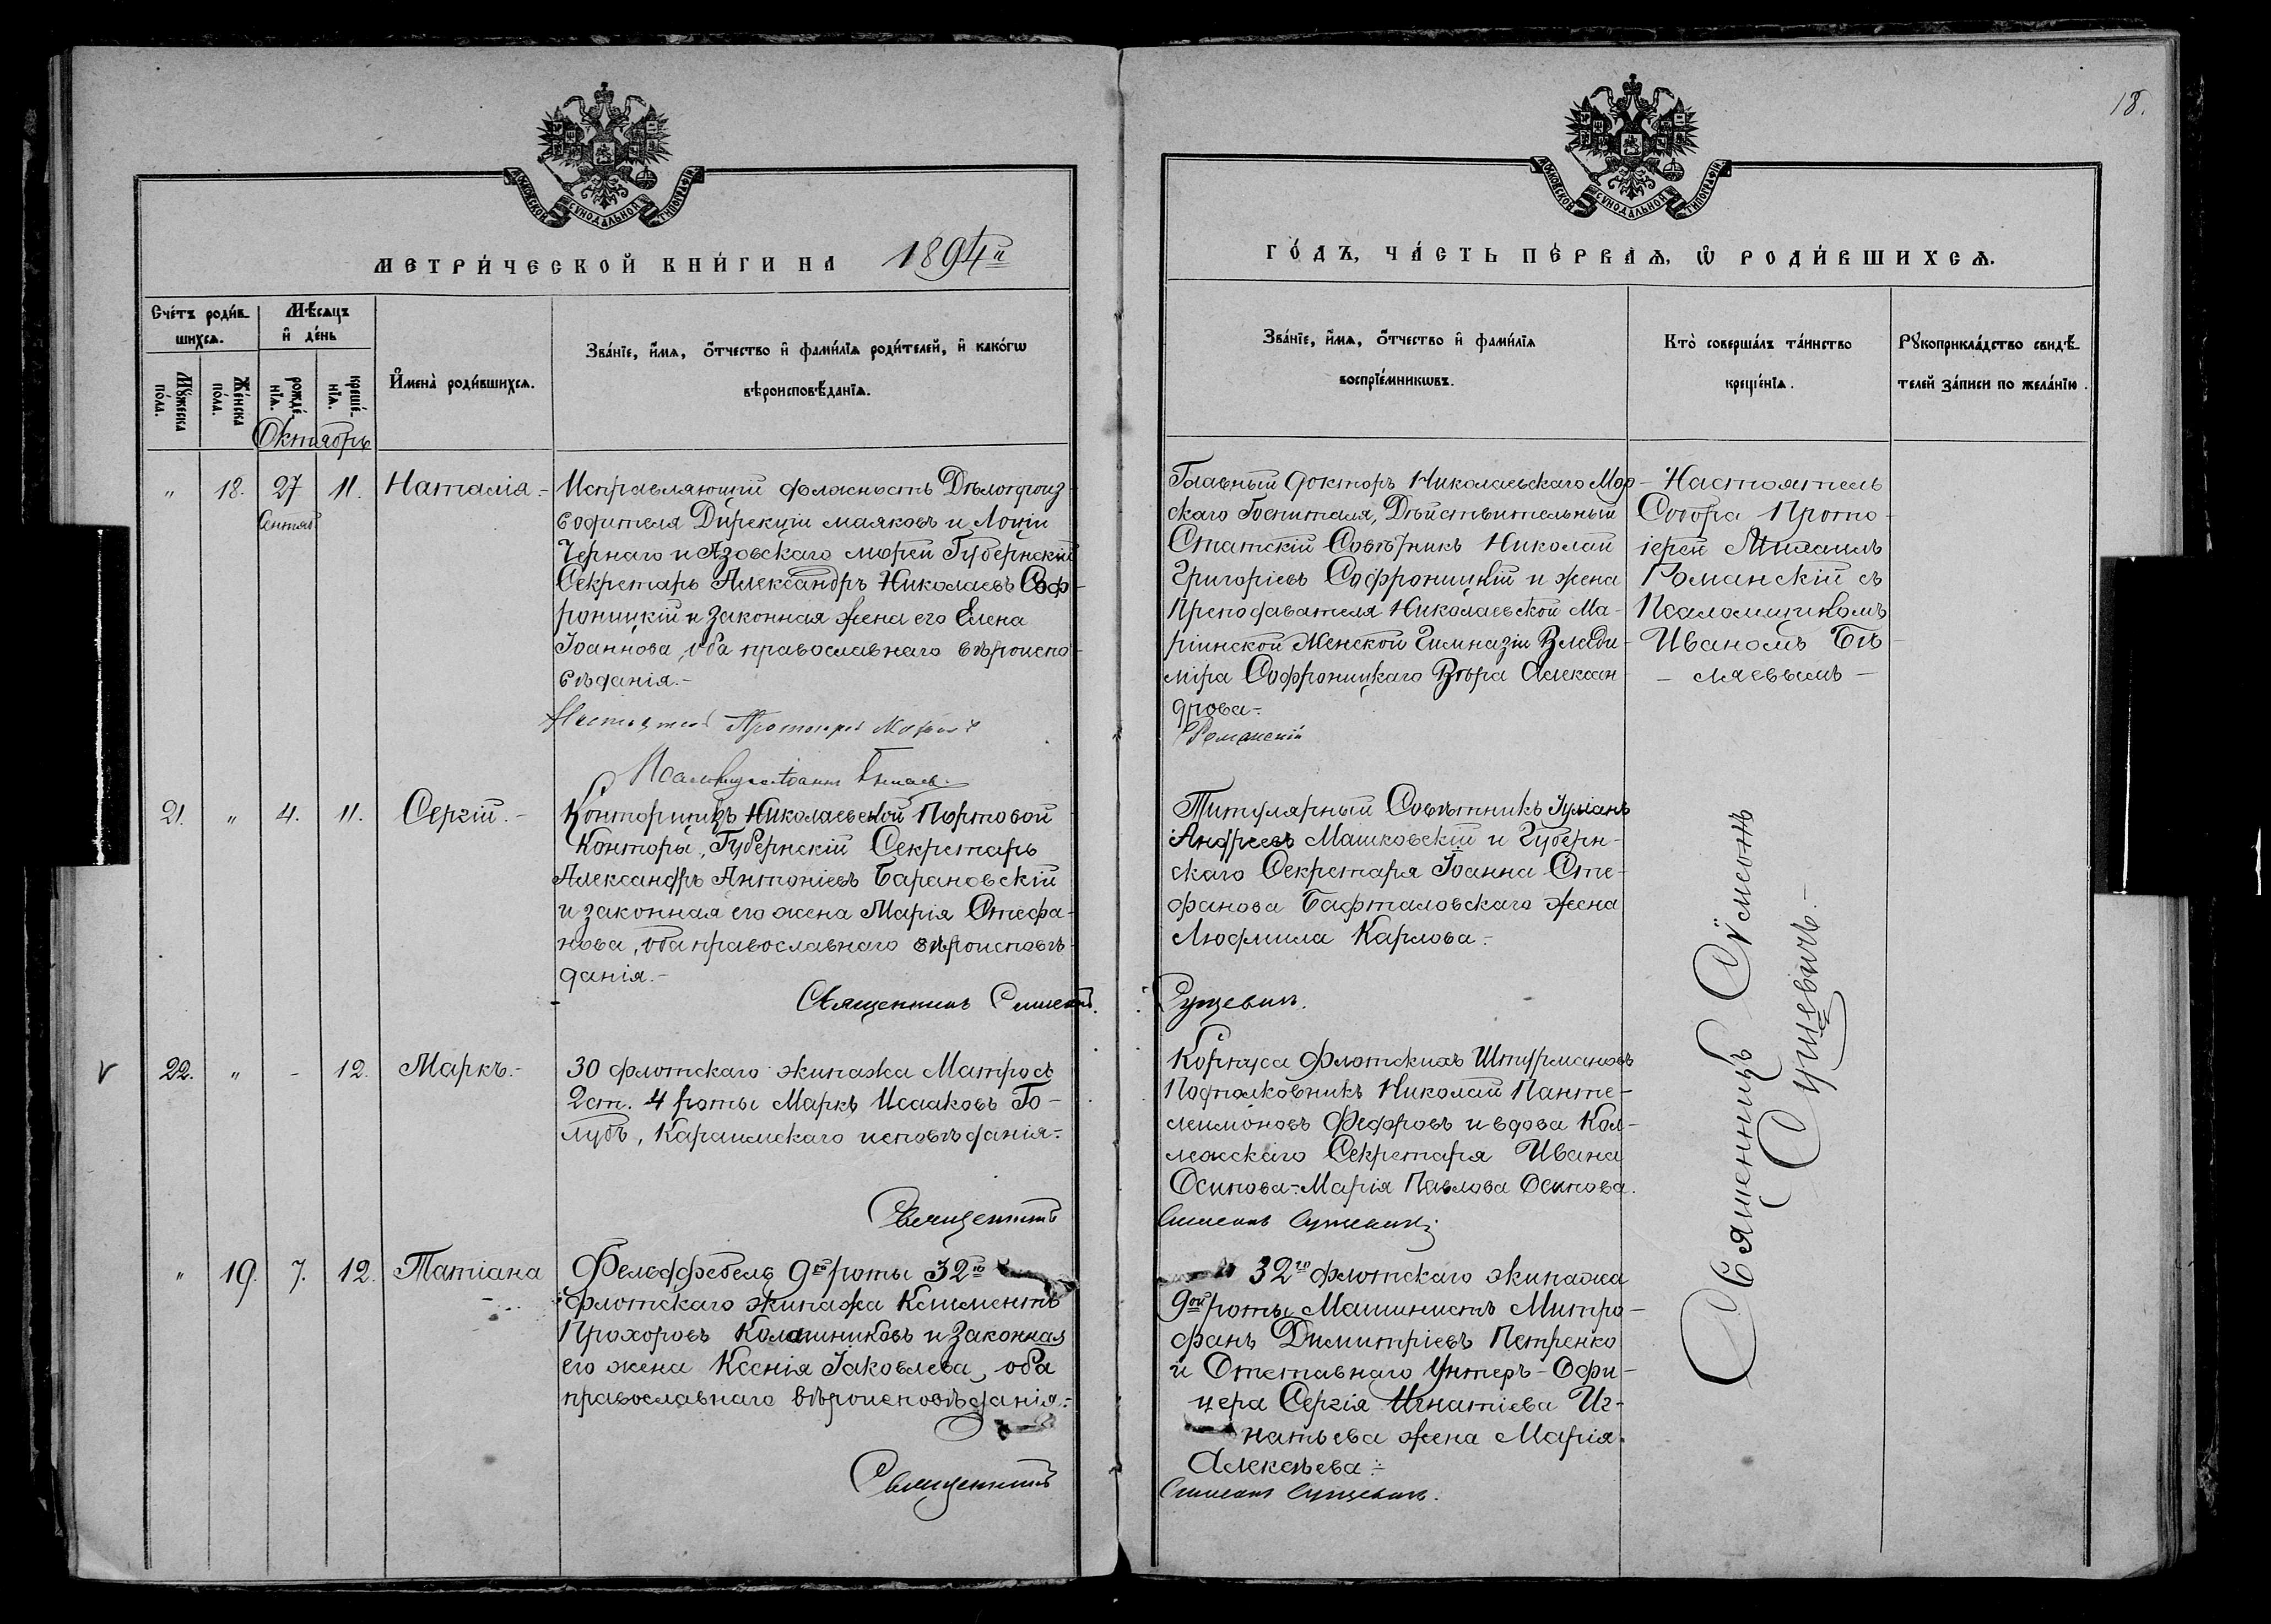 18.
МОСКОВСКОЙ СѴНОДАЛЬНОЙ ТИПОГРАФІИ
МОСКОВСКОЙ СѴНОДАЛЬНОЙ ТИПОГРАФІИ
МЕТРИ́ЧЕСКОЙ КНИ́ГИ НА 1894й
ГО́ДЪ, ЧА́СТЬ ПЕ́РВАѦ, Ѡ РОДИ́ВШИХСѦ.
Сче́тъ роди́в-
шихсѧ.
Мꙋ́жеска
по́ла.
Же́нска
по́ла.
Мѣ́сѧцъ
и҆ де́нь
рожде́-
нїѧ.
креще́-
нїѧ.
И҆мена̀ роди́вшихсѧ.
Зва́нїе, и҆́мѧ, ѻ҆́тчество и҆ фами́лїѧ роди́телей, и҆ како́гѡ
вѣроисповѣ́данїѧ.
Зва́нїе, и҆́мѧ, ѻ҆́тчество и҆ фами́лїѧ
воспрїе́мникѡвъ.
Кто̀ соверша́лъ та́инство
креще́нїѧ.
Рꙋкоприкла́дство свидѣ́-
телей за́писи по жела́нїю.
Октябрь
" 18. 27 11. Наталія.-
Сентяб
Исправляющій должность Дѣлопроиз-
водителя Дирекціи маяковъ и Лоціи
Чернаго и Азовскаго морей Губернскій
Секретарь Александръ Николаевъ Соф-
роницкій и законная жена его Елена
Іоаннова, оба православнаго вѣроиспо-
вѣданія.-
Главный докторъ Николаевскаго Мор-
скаго Госпиталя, Дѣйствительный
Статскій Совѣтникъ Николай
Григоріевъ Софроницкій и жена
Преподавателя Николаевской Ма-
ріинской Женской Гимназіи Влади-
міра Софроницкаго Вѣра Алексан-
дрова.-
Настоятель
Собора Прото-
іерей Михаилъ
Романскій съ
Псаломщикомъ
Иваномъ Бѣ-
- ляевымъ -
Романскій
21. " 4. 11. Сергій.-
Конторщикъ Николаевской Портовой
Конторы, Губернскій Секретарь
Александръ Антоніевъ Барановскій
и законная его жена Марія Стефа-
нова, оба православнаго вѣроисповѣ-
данія.-
Священникъ Симеонъ
Титулярный Совѣтникъ Іуліанъ
Андреевъ Машковскій и Губерн-
скаго Секретаря Іоанна Сте-
фанова Бафталовскаго жена
Людмила Карлова.-
Сущевичъ.
Священникъ Сѵмеонъ
Сущевичъ.-
v 22. " - 12. Маркъ.-
30 флотскаго экипажа Матросъ
2 ст. 4 роты Маркъ Исааковъ Го-
лубъ, Караимскаго исповѣданія.-
Священникъ
Корпуса Флотскихъ Штурмановъ
Подполковникъ Николай Панте-
леимоновъ Федровъ и вдова Кол-
лежскаго Секретаря Ивана
Осипова-Марія Павлова Осипова.
Симеонъ Сущевичъ
" 19. 7. 12. Татіана
Фельдфебель 9ой роты 32го
флотскаго экипажа Климентъ
Прохоровъ Калашниковъ и законная
его жена Ксенія Іаковлева, оба
православнаго вѣроисповѣданія.-
Священникъ
32го флотскаго экипажа
9ой роты Машинистъ Митро-
фанъ Димитріевъ Петренко
и Отставнаго Унтеръ-Офи-
цера Сергія Игнатіева Иг-
натьева жена Марія
Алексѣева.-
Симеонъ Сущевичъ.